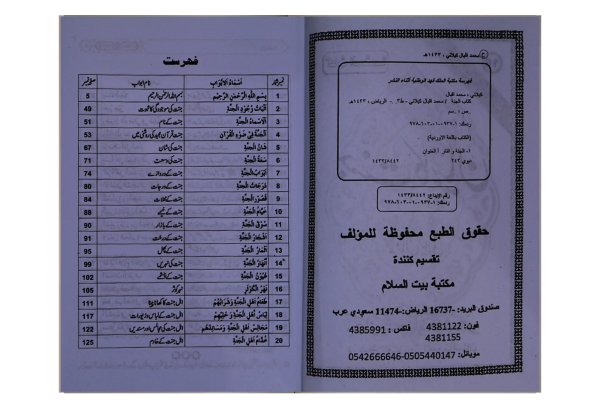 ح محمد اقبال كيلاني ، ١٤٣٣هـ
فهرسة مكتبة الملك فهد الوطنية أثناء النشر
كيلاني ، محمد اقبال
كتاب الجنة / محمد اقبال كيلاني .- ط٣. - الرياض ، ١٤٣٣هـ
ص ؛ سم
ردمك: ١-٠٩٣٧-٠١-٦٠٣-٩٧٨
(الكتاب باللغة الاوردية)
١- الجنة والنار أ. العنوان
ديوي ٢٤٣ ١٤٣٣/٨٤٤٢
رقم الإيداع: ١٤٣٣/٨٤٤٢
ردمك: ١-٠٩٣٧-٠١-٦٠٣-٩٧٨
حقوق الطبع محفوظة للمؤلف
تقسیم کنندہ
مكتبة بيت السلام
صندوق البريد:-16737 الرياض:-11474 سعودي عرب
فون: 4381122 فاكس : 4385991
4381155
موبائل: 0505440147-0542666646
فهرست
نمبر شمار اَسْمَاءُ الْاَبْوَابِ نام ابواب صفحہ نمبر
1 بِسْمِ اللّٰهِ الرَّحْمٰنِ الرَّحِيْمِ بسم اللہ الرحمٰن الرحیم 5
2 اِثْبَاتُ وُجُوْدِ الْجَنَّةِ جنت کی موجودگی کا ثبوت 49
3 اَلْاَسْمَاءُ الْجَنَّةِ جنت کے نام 51
4 اَلْجَنَّةُ فِيْ ضَوْءِ الْقُرْآنِ جنت قرآن مجید کی روشنی میں 53
5 شَأْنُ الْجَنَّةِ جنت کی شان 67
6 سَعَةُ الْجَنَّةِ جنت کی وسعت 71
7 اَبْوَابُ الْجَنَّةِ جنت کے دروازے 74
8 دَرَجَاتُ الْجَنَّةِ جنت کے درجات 80
9 قُصُوْرُ الْجَنَّةِ جنت کے محلات 84
10 خِيَامُ الْجَنَّةِ جنت کے خیمے 88
11 سُوْقُ الْجَنَّةِ جنت کے بازار 90
12 اَشْجَارُ الْجَنَّةِ جنت کے درخت 91
13 اَثْمَارُ الْجَنَّةِ جنت کے پھل 95
14 اَنْهَارُ الْجَنَّةِ جنت کی نہریں 99
15 عُيُوْنُ الْجَنَّةِ جنت کے چشمے 102
16 نَهْرُ الْكَوْثَرِ حوض کوثر 105
17 طَعَامُ اَهْلِ الْجَنَّةِ وَ شَرَابُهُمْ اہل جنت کا کھانا پینا 111
18 لِبَاسُ اَهْلِ الْجَنَّةِ وَ حُلِيُّهُمْ اہل جنت کے لباس و زیورات 117
19 مَجَالِسُ اَهْلِ الْجَنَّةِ وَ مَسَانِدُهُمْ اہل جنت کی مجالس اور مسندیں 122
20 خُدَّامُ اَهْلِ الْجَنَّةِ اہل جنت کے خادم 125